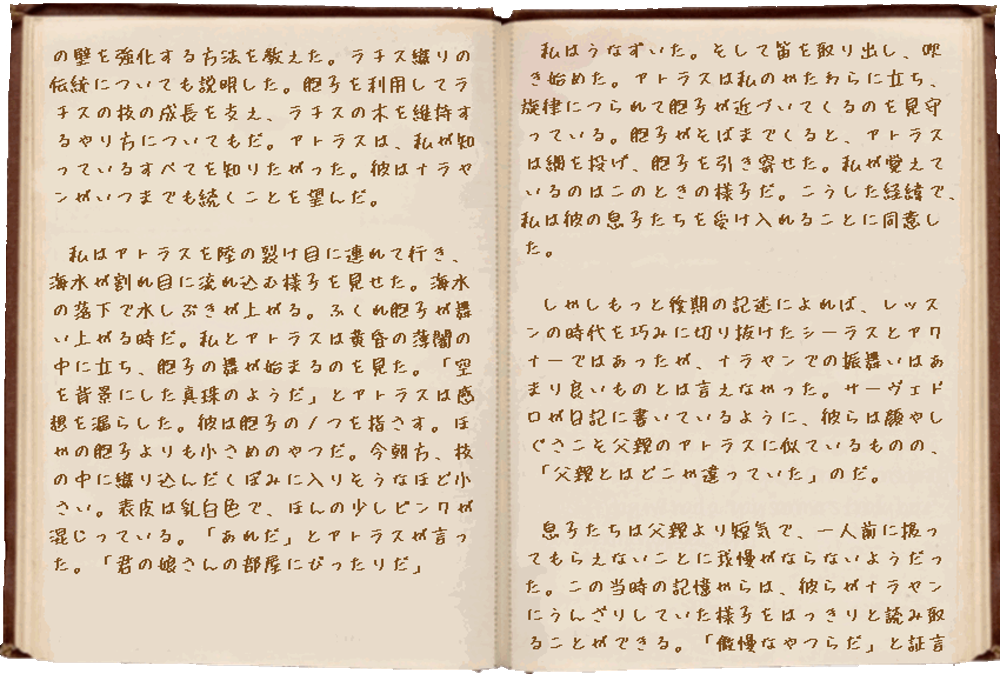 の壁を強化する方法を教えた。ラチス綴りの
伝統についても説明した。胞子を利用してラ
チスの枝の成長を支え、ラチスの木を維持す
るやり方についてもだ。アトラスは、私が知
っているすべてを知りたがった。彼はナラヤ
ンがいつまでも続くことを望んだ。
私はアトラスを陸の裂け目に連れて行き、
海水が割れ目に流れ込む様子を見せた。海水
の落下で水しぶきが上がる。ふくれ胞子が舞
い上がる時だ。私とアトラスは黄昏の薄闇の
中に立ち、胞子の舞が始まるのを見た。「空
を背景にした真珠のようだ」とアトラスは感
想を漏らした。彼は胞子の1つを指さす。ほ
かの胞子よりも小さめのやつだ。今朝方、枝
の中に綴り込んだくぼみに入りそうなほど小
さい。表皮は乳白色で、ほんの少しピンクが
混じっている。「あれだ」とアトラスが言っ
た。「君の娘さんの部屋にぴったりだ」
私はうなずいた。そして笛を取り出し、吹
き始めた。アトラスは私のかたわらに立ち、
旋律につられて胞子が近づいてくるのを見守
っている。胞子がそばまでくると、アトラス
は網を投げ、胞子を引き寄せた。私が覚えて
いるのはこのときの様子だ。こうした経緯で、
私は彼の息子たちを受け入れることに同意し
た。
しかしもっと後期の記述によれば、レッス
ンの時代を巧みに切り抜けたシーラスとアク
ナーではあったが、ナラヤンでの振舞いはあ
まり良いものとは言えなかった。サーヴェド
ロが日記に書いているように、彼らは顔やし
ぐさこそ父親のアトラスに似ているものの、
「父親とはどこか違っていた」のだ。
息子たちは父親より短気で、一人前に扱っ
てもらえないことに我慢がならないようだっ
た。この当時の記憶からは、彼らがナラヤン
にうんざりしていた様子をはっきりと読み取
ることができる。「傲慢なやつらだ」と証言